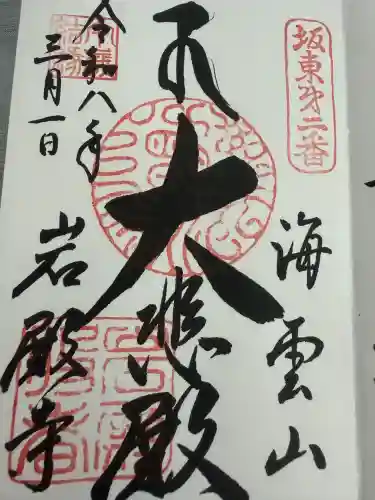 坂東第二番
海雲山
大悲殿
令和八年
三月一日
岩殿寺